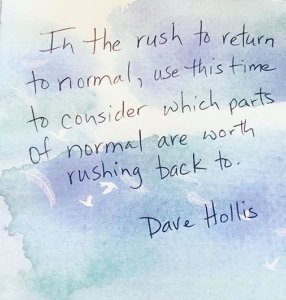 In the rush to return
to normal, use this time
to consider which parts
of normal are worth
rushing back to.
Dave Hollis